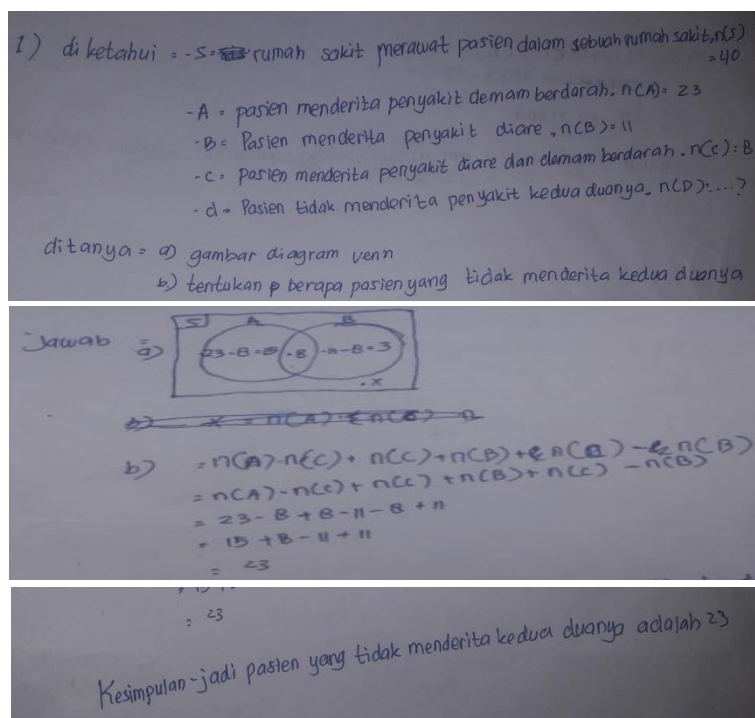 1) diketahui = - S = rumah sakit merawat pasien dalam sebuah rumah sakit, n(S) = 40
- A = pasien menderita penyakit demam berdarah. n(A) = 23
- B = Pasien menderita penyakit diare, n(B) = 11
- C = pasien menderita penyakit diare dan demam berdarah. n(C) = 8
- d = Pasien tidak menderita penyakit kedua duanya. n(D) = ....?
ditanya = a) gambar diagram venn
b) tentukan berapa pasien yang tidak menderita kedua duanya
Jawab =
a) S A B
23 - 8 = 15 • 8 - 11 - 8 = 3
• x
b) = n(A) - n(C) + n(C) + n(B) + n(C) - n(B)
= n(A) - n(C) + n(C) + n(B) + n(C) - n(B)
= 23 - 8 + 8 - 11 - 8 + 11
= 15 + 8 - 11 + 11
= 23
= 23
Kesimpulan - jadi pasien yang tidak menderita kedua duanya adalah 23